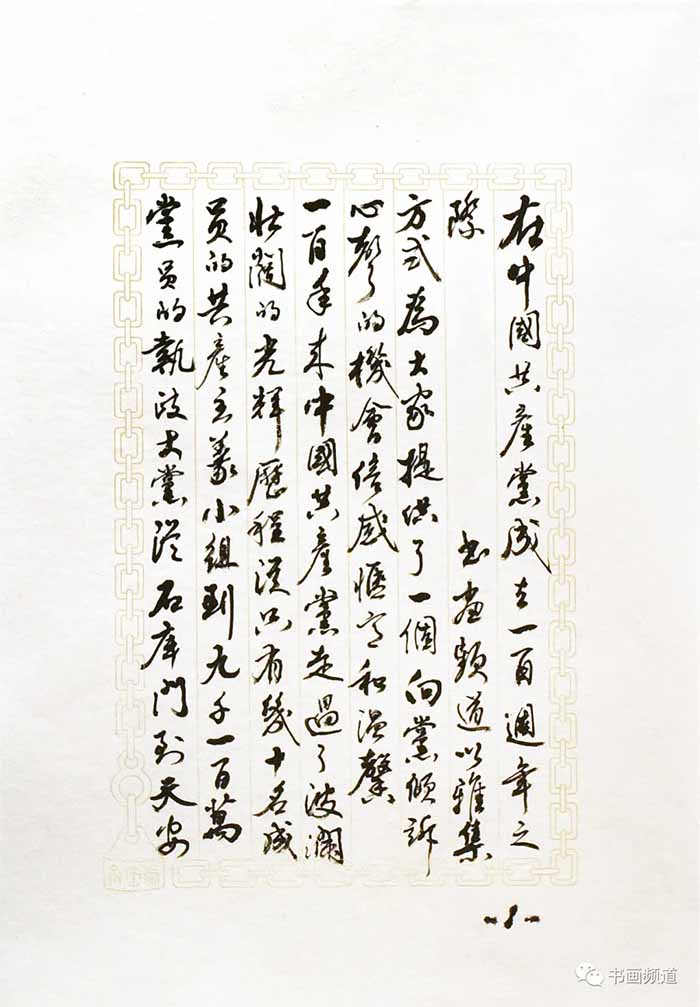 在中國共產黨成立一百週年之
際 書畫頻道以雅集
方式為大家提供了一個向黨傾訴
心聲的機會倍感愜意和温馨
一百年来中國共產黨走過了波瀾
壯闊的光輝歷程從只有幾十名成
员的共產主義小組到九千一百萬
黨员的執政大黨從石库門到天安
-1-
书画频道